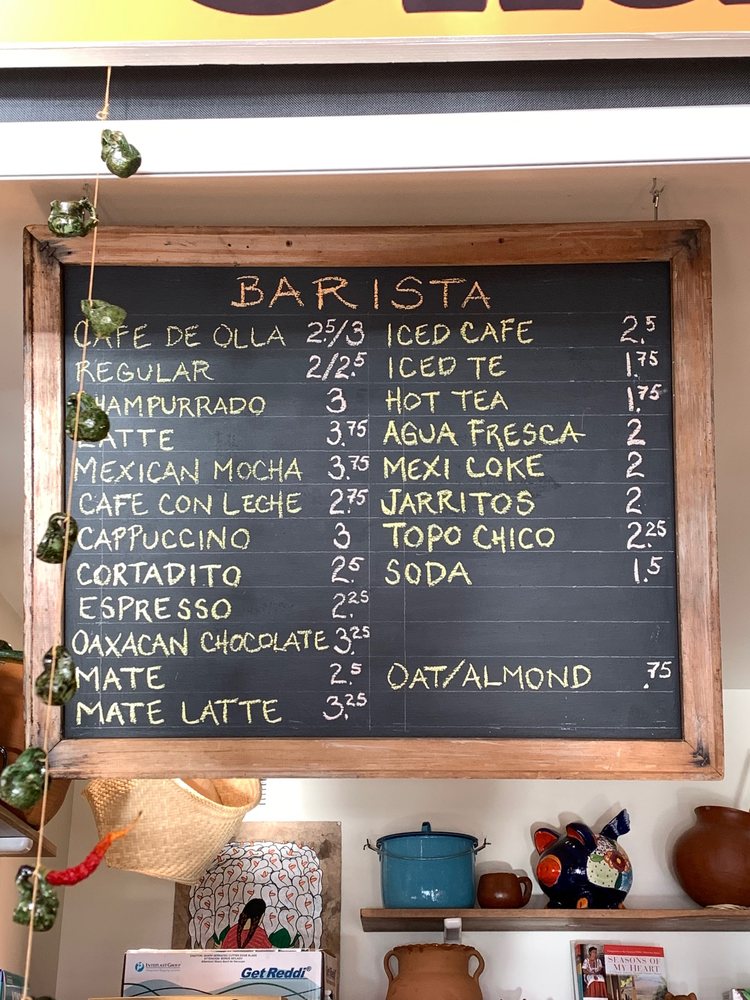 BARISTA
CAFE DE OLLA 2.5/3
REGULAR 2/2.5
CHAMPURRADO 3
LATTE 3.75
MEXICAN MOCHA 3.75
CAFE CON LECHE 2.75
CAPPUCCINO 3
CORTADITO 2.5
ESPRESSO 2.25
OAXACAN CHOCOLATE 3.25
MATE 2.5
MATE LATTE 3.25
ICED CAFE 2.5
ICED TE 1.75
HOT TEA 1.75
AGUA FRESCA 2
MEXI COKE 2
JARRITOS 2
TOPO CHICO 2.25
SODA 1.5
OAT/ALMOND .75
INTEPLAST GROUP
GetReddi
SEASONS
OF MY HEART